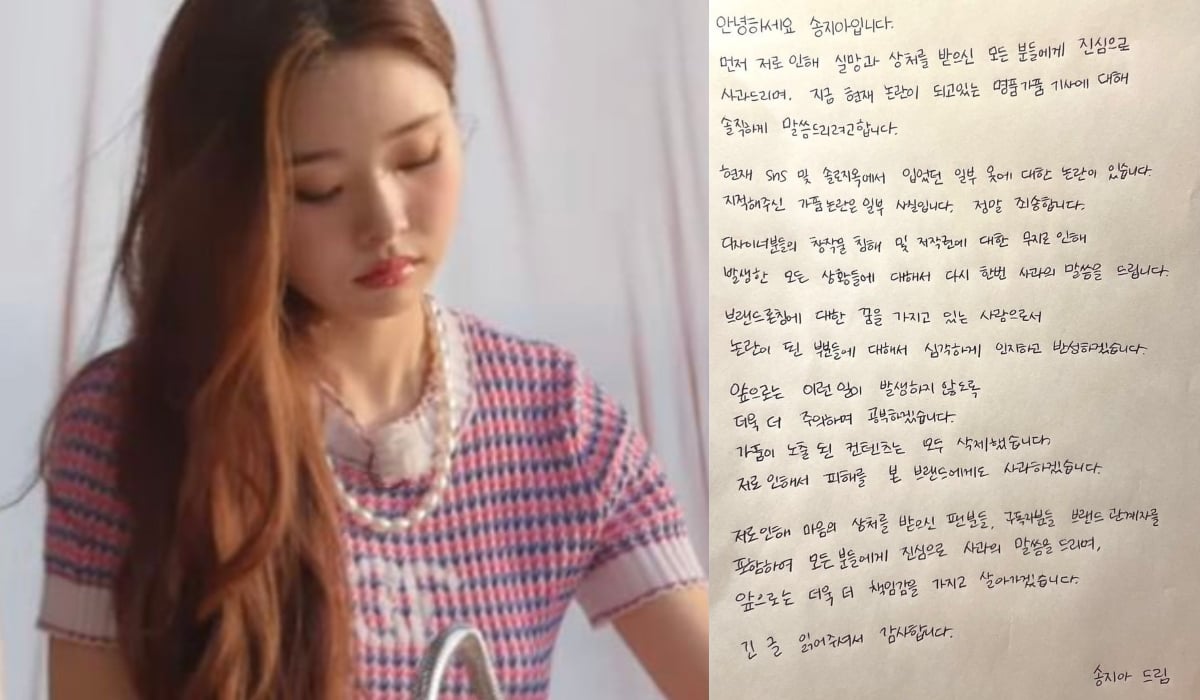 안녕하세요 송지아입니다.
먼저 저로 인해 실망과 상처를 받으신 모든 분들에게 진심으로
사과드리며, 지금 현재 논란이 되고있는 명품가품 기사에 대해
솔직하게 말씀드리려고합니다.
현재 sns 및 솔로지옥에서 입었던 일부 옷에 대한 논란이 있습니다.
지적해주신 가품 논란은 일부 사실입니다. 정말 죄송합니다.
디자이너분들의 창작물 침해 및 저작권에 대한 무지로 인해
발생한 모든 상황들에 대해서 다시 한번 사과의 말씀을 드립니다.
브랜드론칭에 대한 꿈을 가지고 있는 사람으로서
논란이 된 부분들에 대해서 심각하게 인지하고 반성하겠습니다.
앞으로는 이런 일이 발생하지 않도록
더욱 더 주의하며 공부하겠습니다.
가품이 노출 된 컨텐츠는 모두 삭제했습니다.
저로 인해서 피해를 본 브랜드에게도 사과하겠습니다.
저로인해 마음의 상처를 받으신 팬분들, 구독자분들 브랜드 관계자를
포함하여 모든 분들에게 진심으로 사과의 말씀을 드리며,
앞으로는 더욱 더 책임감을 가지고 살아가겠습니다.
긴 글 읽어주셔서 감사합니다.
송지아 드림